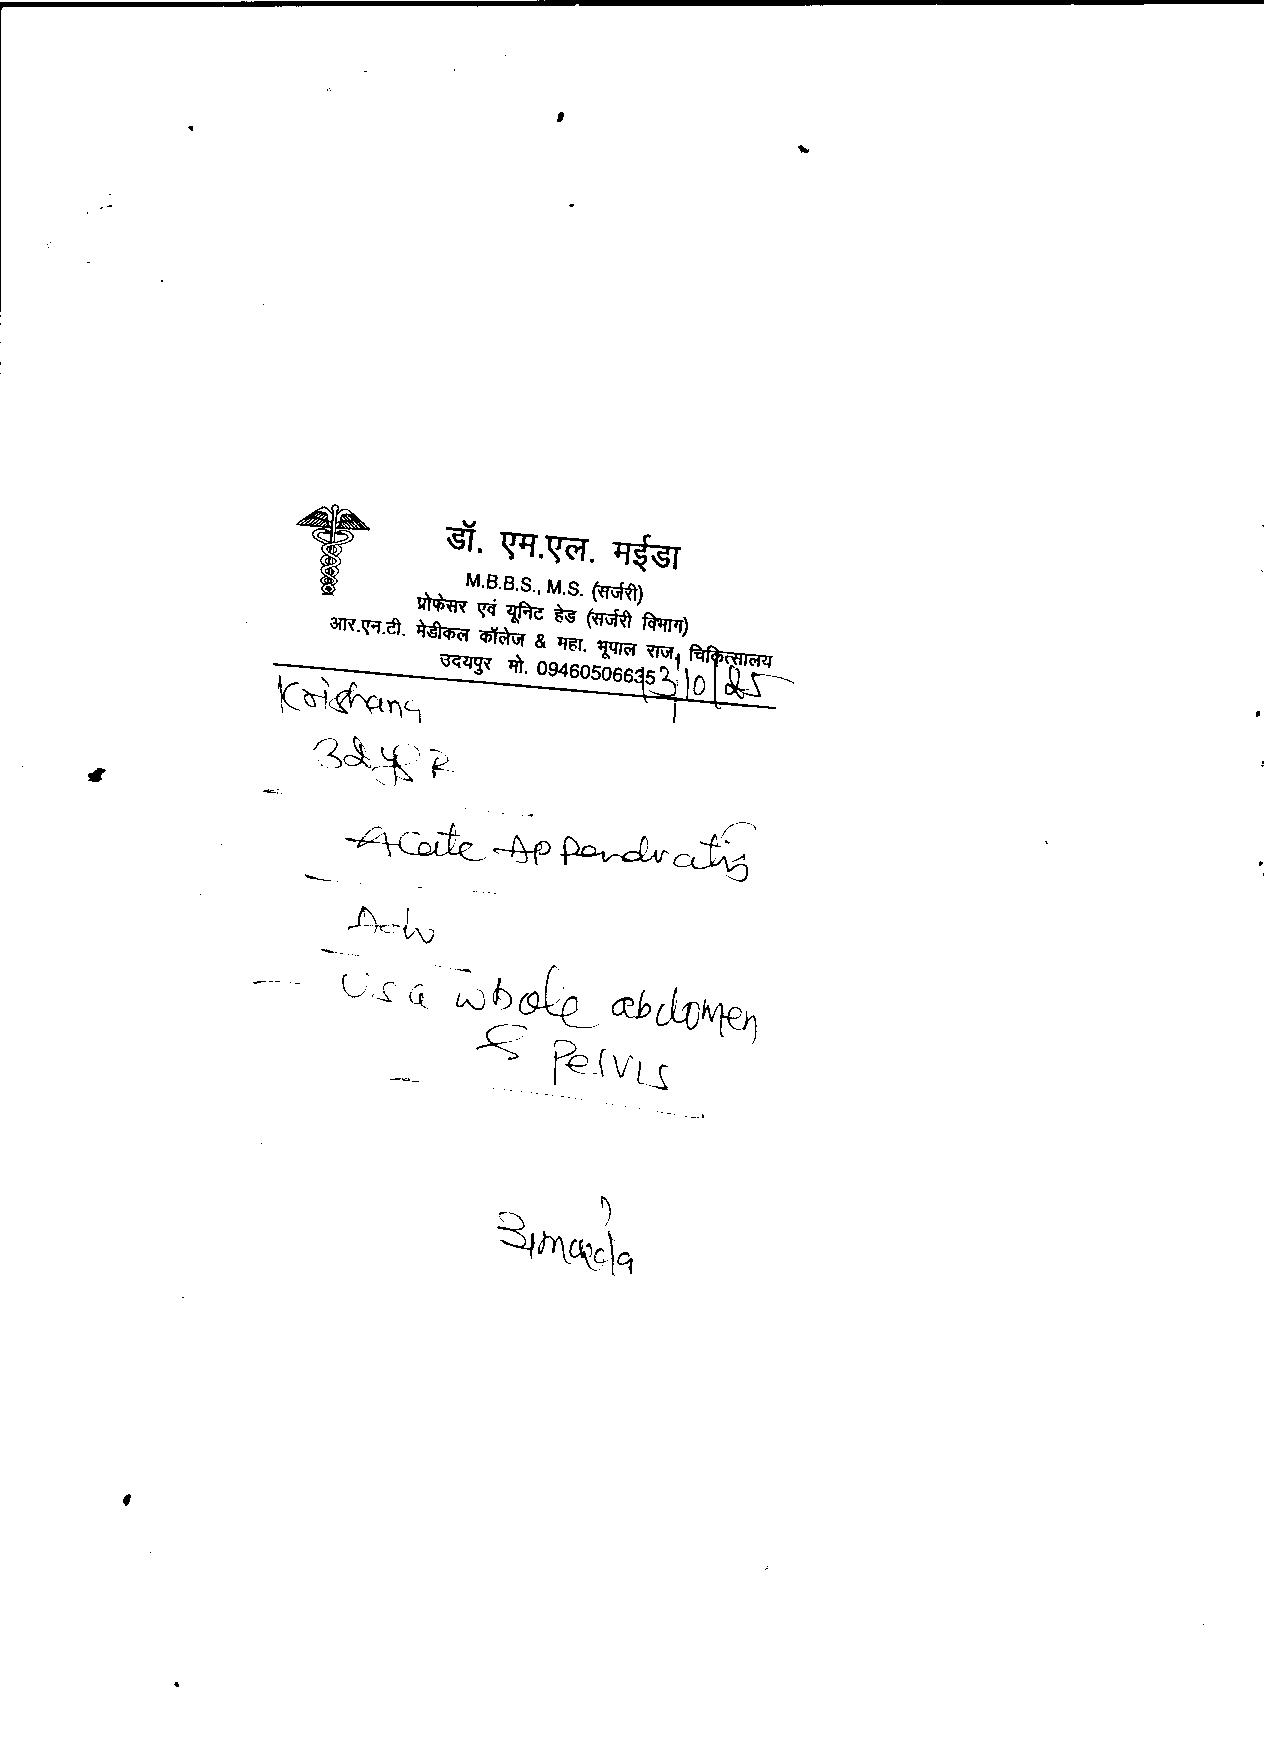 डॉ. एम.एल. मईडा
M.B.B.S., M.S. (सर्जरी)
प्रोफेसर एवं यूनिट हेड (सर्जरी विभाग)
आर.एन.टी. मेडीकल कॉलेज & महा. भूपाल राज. चिकित्सालय
उदयपुर मो. 09460506635
13/10/25
Krishana
32yr
Acute Appendicatis
Adv
USG whole abdomen
& Pelvis